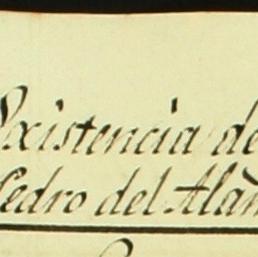 Existencia de
Pedro del Alam